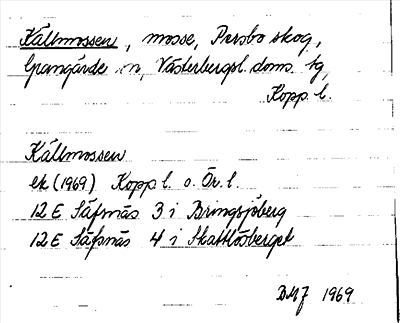 Källmossen, mosse, Persbo skog,
Grangärde sn, Västerbergsl. doms. tg,
Kopp. l.
Källmossen
ek (1969) Kopp l. o. Ör. l.
12 E Säfsnäs 3 i Bringsjöberg
12 E Säfsnäs 4 i Skattlösberget
1969